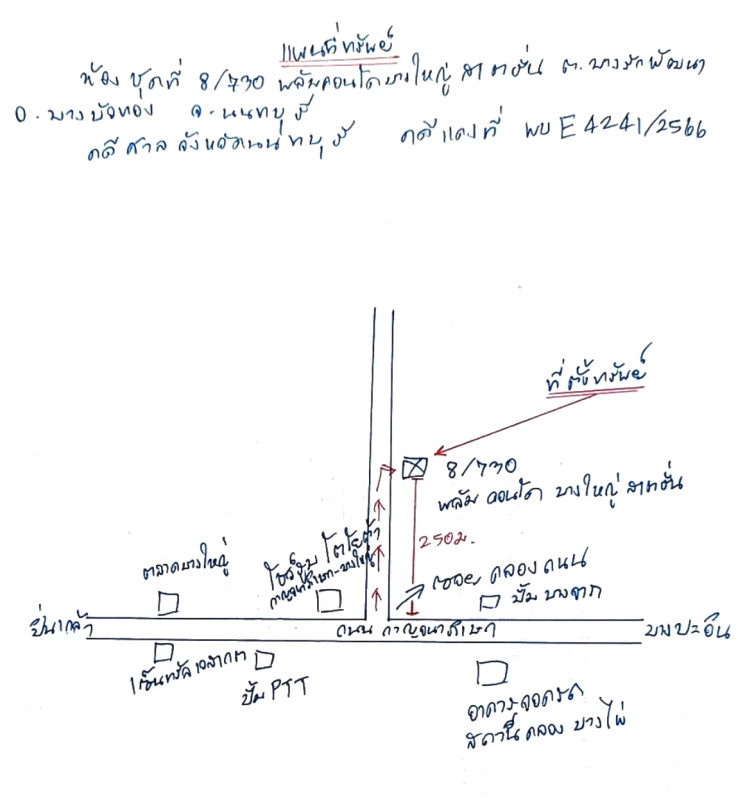 แผนที่ทรัพย์
ห้องชุดที่ 8/730 พลัมคอนโดบางใหญ่ สเตชั่น ต.บางรักพัฒนา
อ.บางบัวทอง จ.นนทบุรี
คดีศาลจังหวัดนนทบุรี คดีแดงที่ ผบ E 4241/2566
ที่ตั้งทรัพย์
8/730
พลัม คอนโด บางใหญ่ สเตชั่น
250 ม.
ตลาดบางใหญ่
โชว์รูม โตโยต้า
กาญจนาภิเษก-บางใหญ่
ซอย คลองถนน
ปั๊ม บางจาก
ปิ่นเกล้า
ถนน กาญจนาภิเษก
บางปะอิน
เซ็นทรัลเวสเกต
ปั๊ม PTT
อาคารจอดรถ
สถานี คลอง บางไผ่